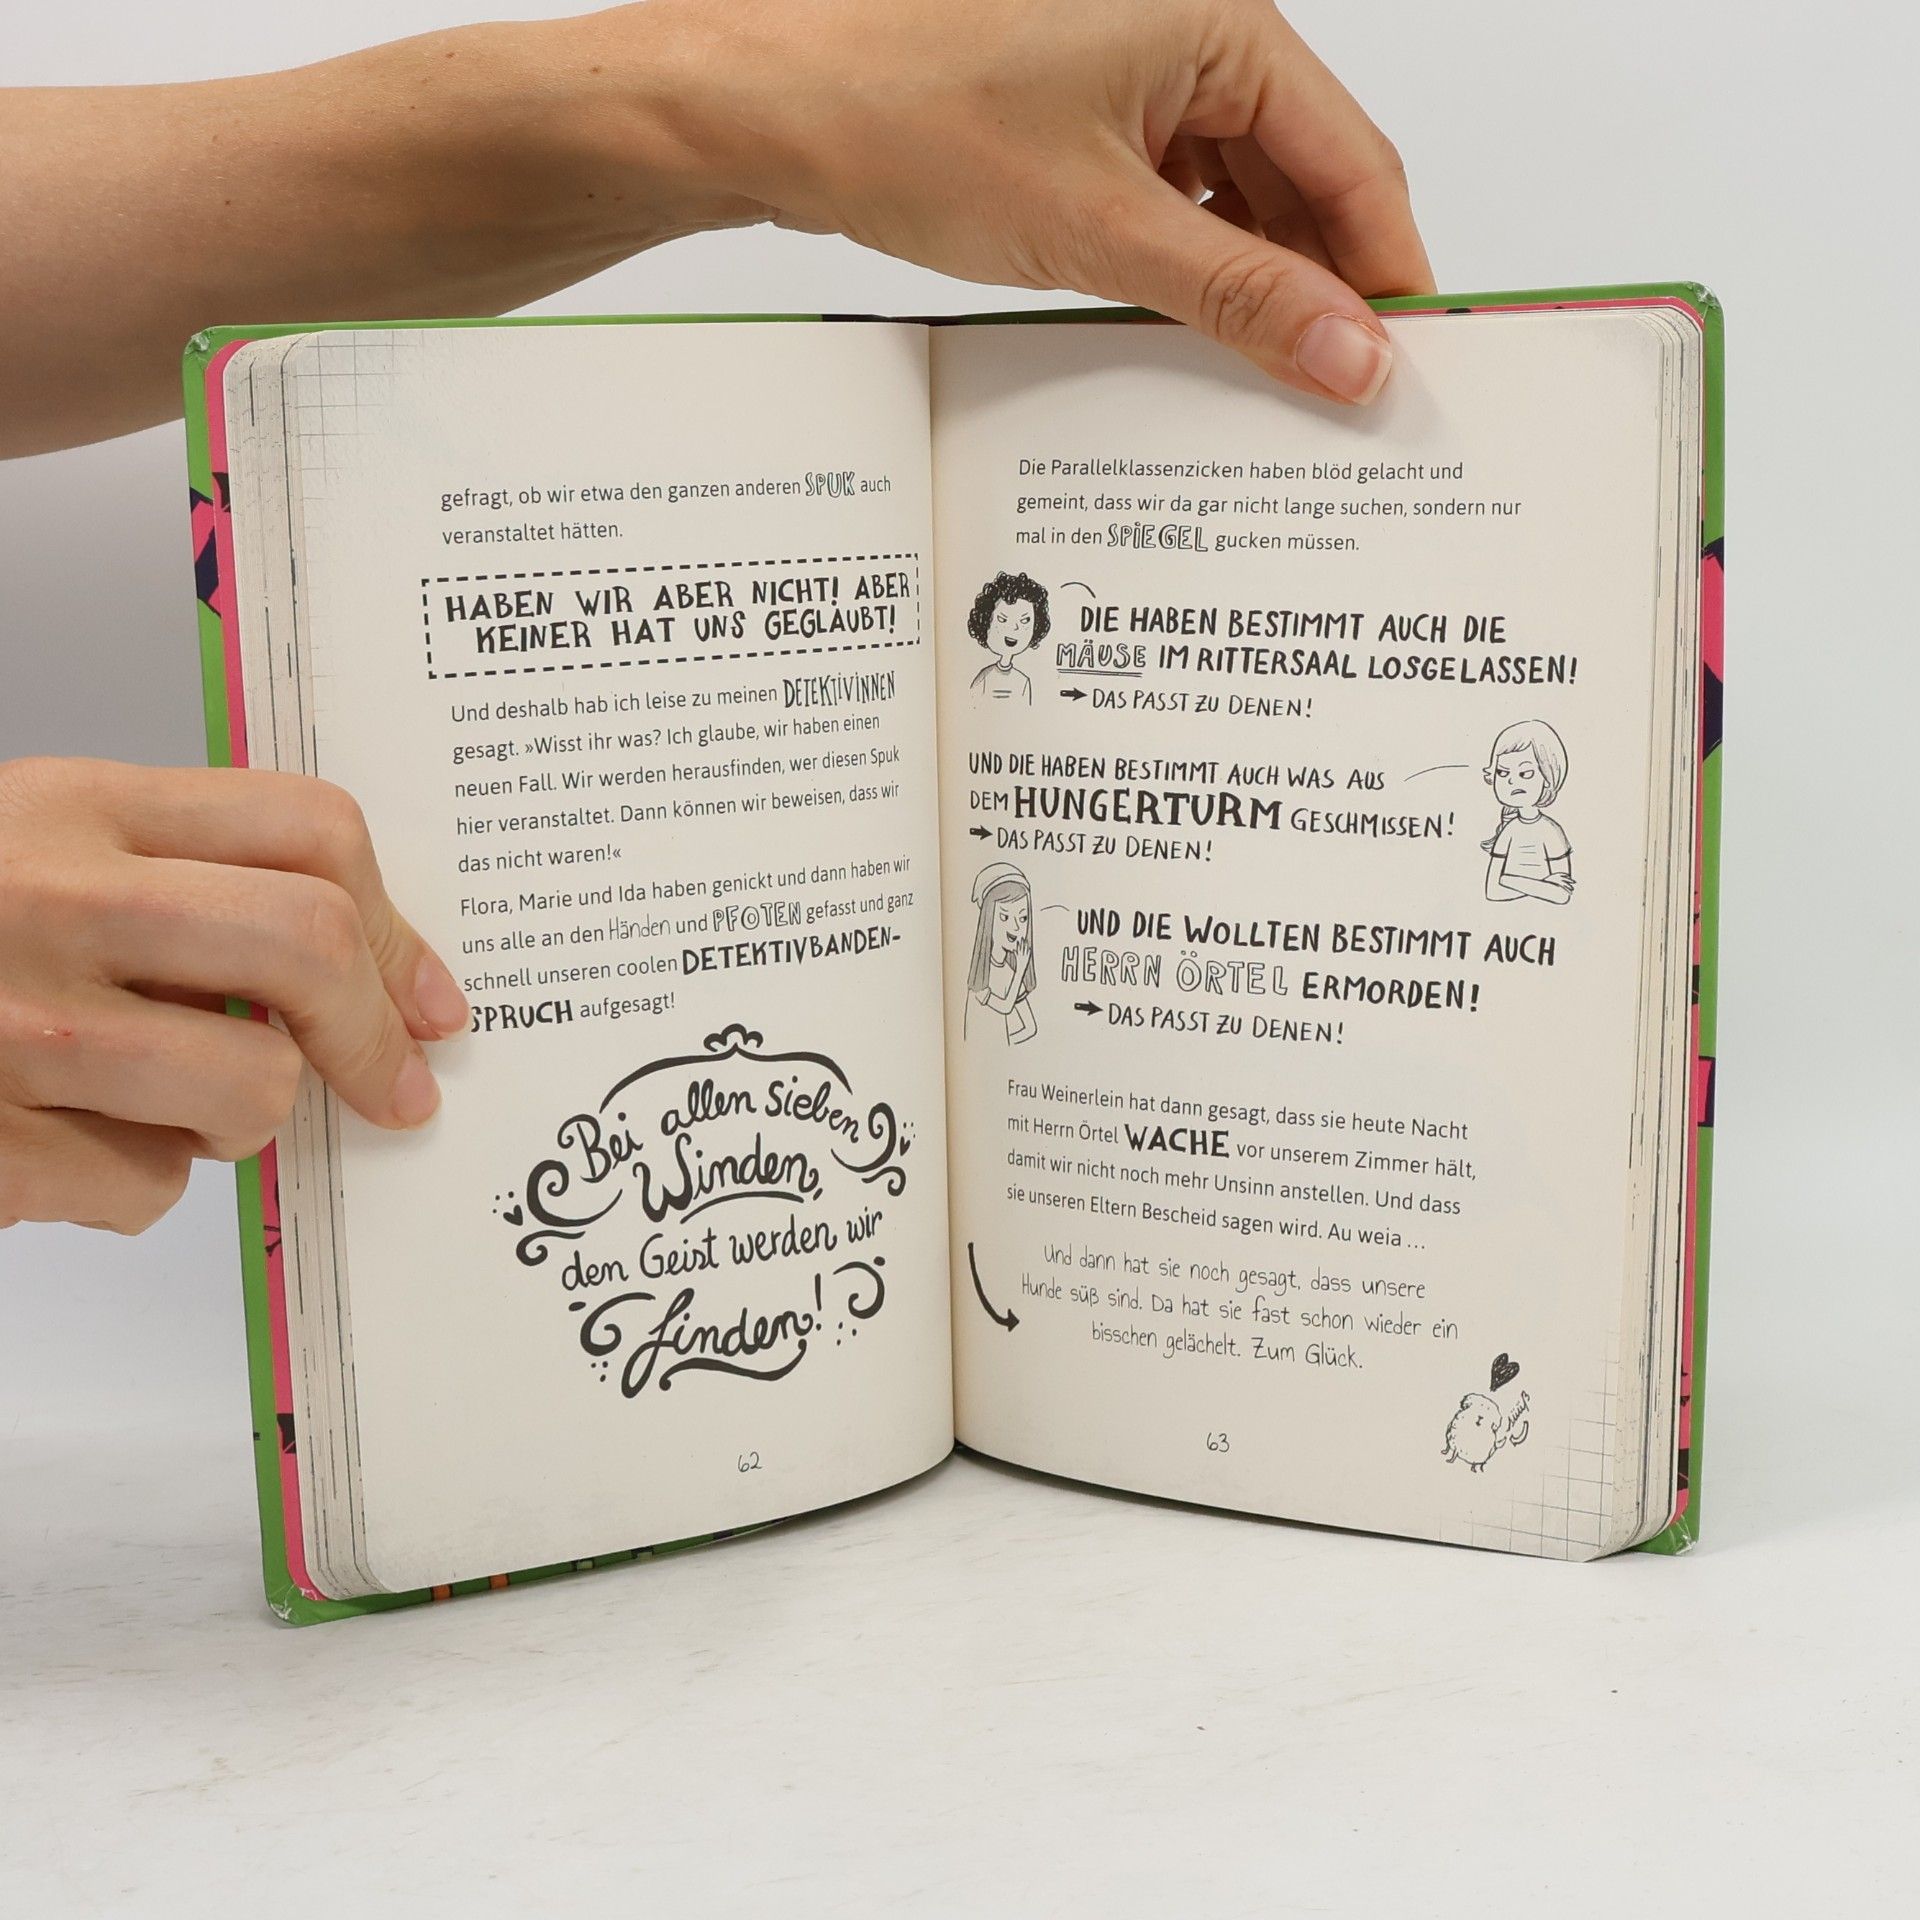 gefragt, ob wir etwa den ganzen anderen SPUK auch
veranstaltet hätten.
HABEN WIR ABER NICHT! ABER
KEINER HAT UNS GEGLAUBT!
Und deshalb hab ich leise zu meinen DETEKTIVINNEN
gesagt. »Wisst ihr was? Ich glaube, wir haben einen
neuen Fall. Wir werden herausfinden, wer diesen Spuk
hier veranstaltet. Dann können wir beweisen, dass wir
das nicht waren!«
Flora, Marie und Ida haben genickt und dann haben wir
uns alle an den Händen und PFOTEN gefasst und ganz
schnell unseren coolen DETEKTIVBANDEN-
SPRUCH aufgesagt!
Bei allen sieben
Winden,
den Geist werden wir
finden!
62
Die Parallelklassenzicken haben blöd gelacht und
gemeint, dass wir da gar nicht lange suchen, sondern nur
mal in den SPIEGEL gucken müssen.
DIE HABEN BESTIMMT AUCH DIE
MÄUSE IM RITTERSAAL LOSGELASSEN!
DAS PASST ZU DENEN!
UND DIE HABEN BESTIMMT AUCH WAS AUS
DEM HUNGERTURM GESCHMISSEN!
DAS PASST ZU DENEN!
UND DIE WOLLTEN BESTIMMT AUCH
HERRN ÖRTEL ERMORDEN!
DAS PASST ZU DENEN!
Frau Weinerlein hat dann gesagt, dass sie heute Nacht
mit Herrn Örtel WACHE vor unserem Zimmer hält,
damit wir nicht noch mehr Unsinn anstellen. Und dass
sie unseren Eltern Bescheid sagen wird. Au weia ...
Und dann hat sie noch gesagt, dass unsere
Hunde süß sind. Da hat sie fast schon wieder ein
bisschen gelächelt. Zum Glück.
süüüß
63